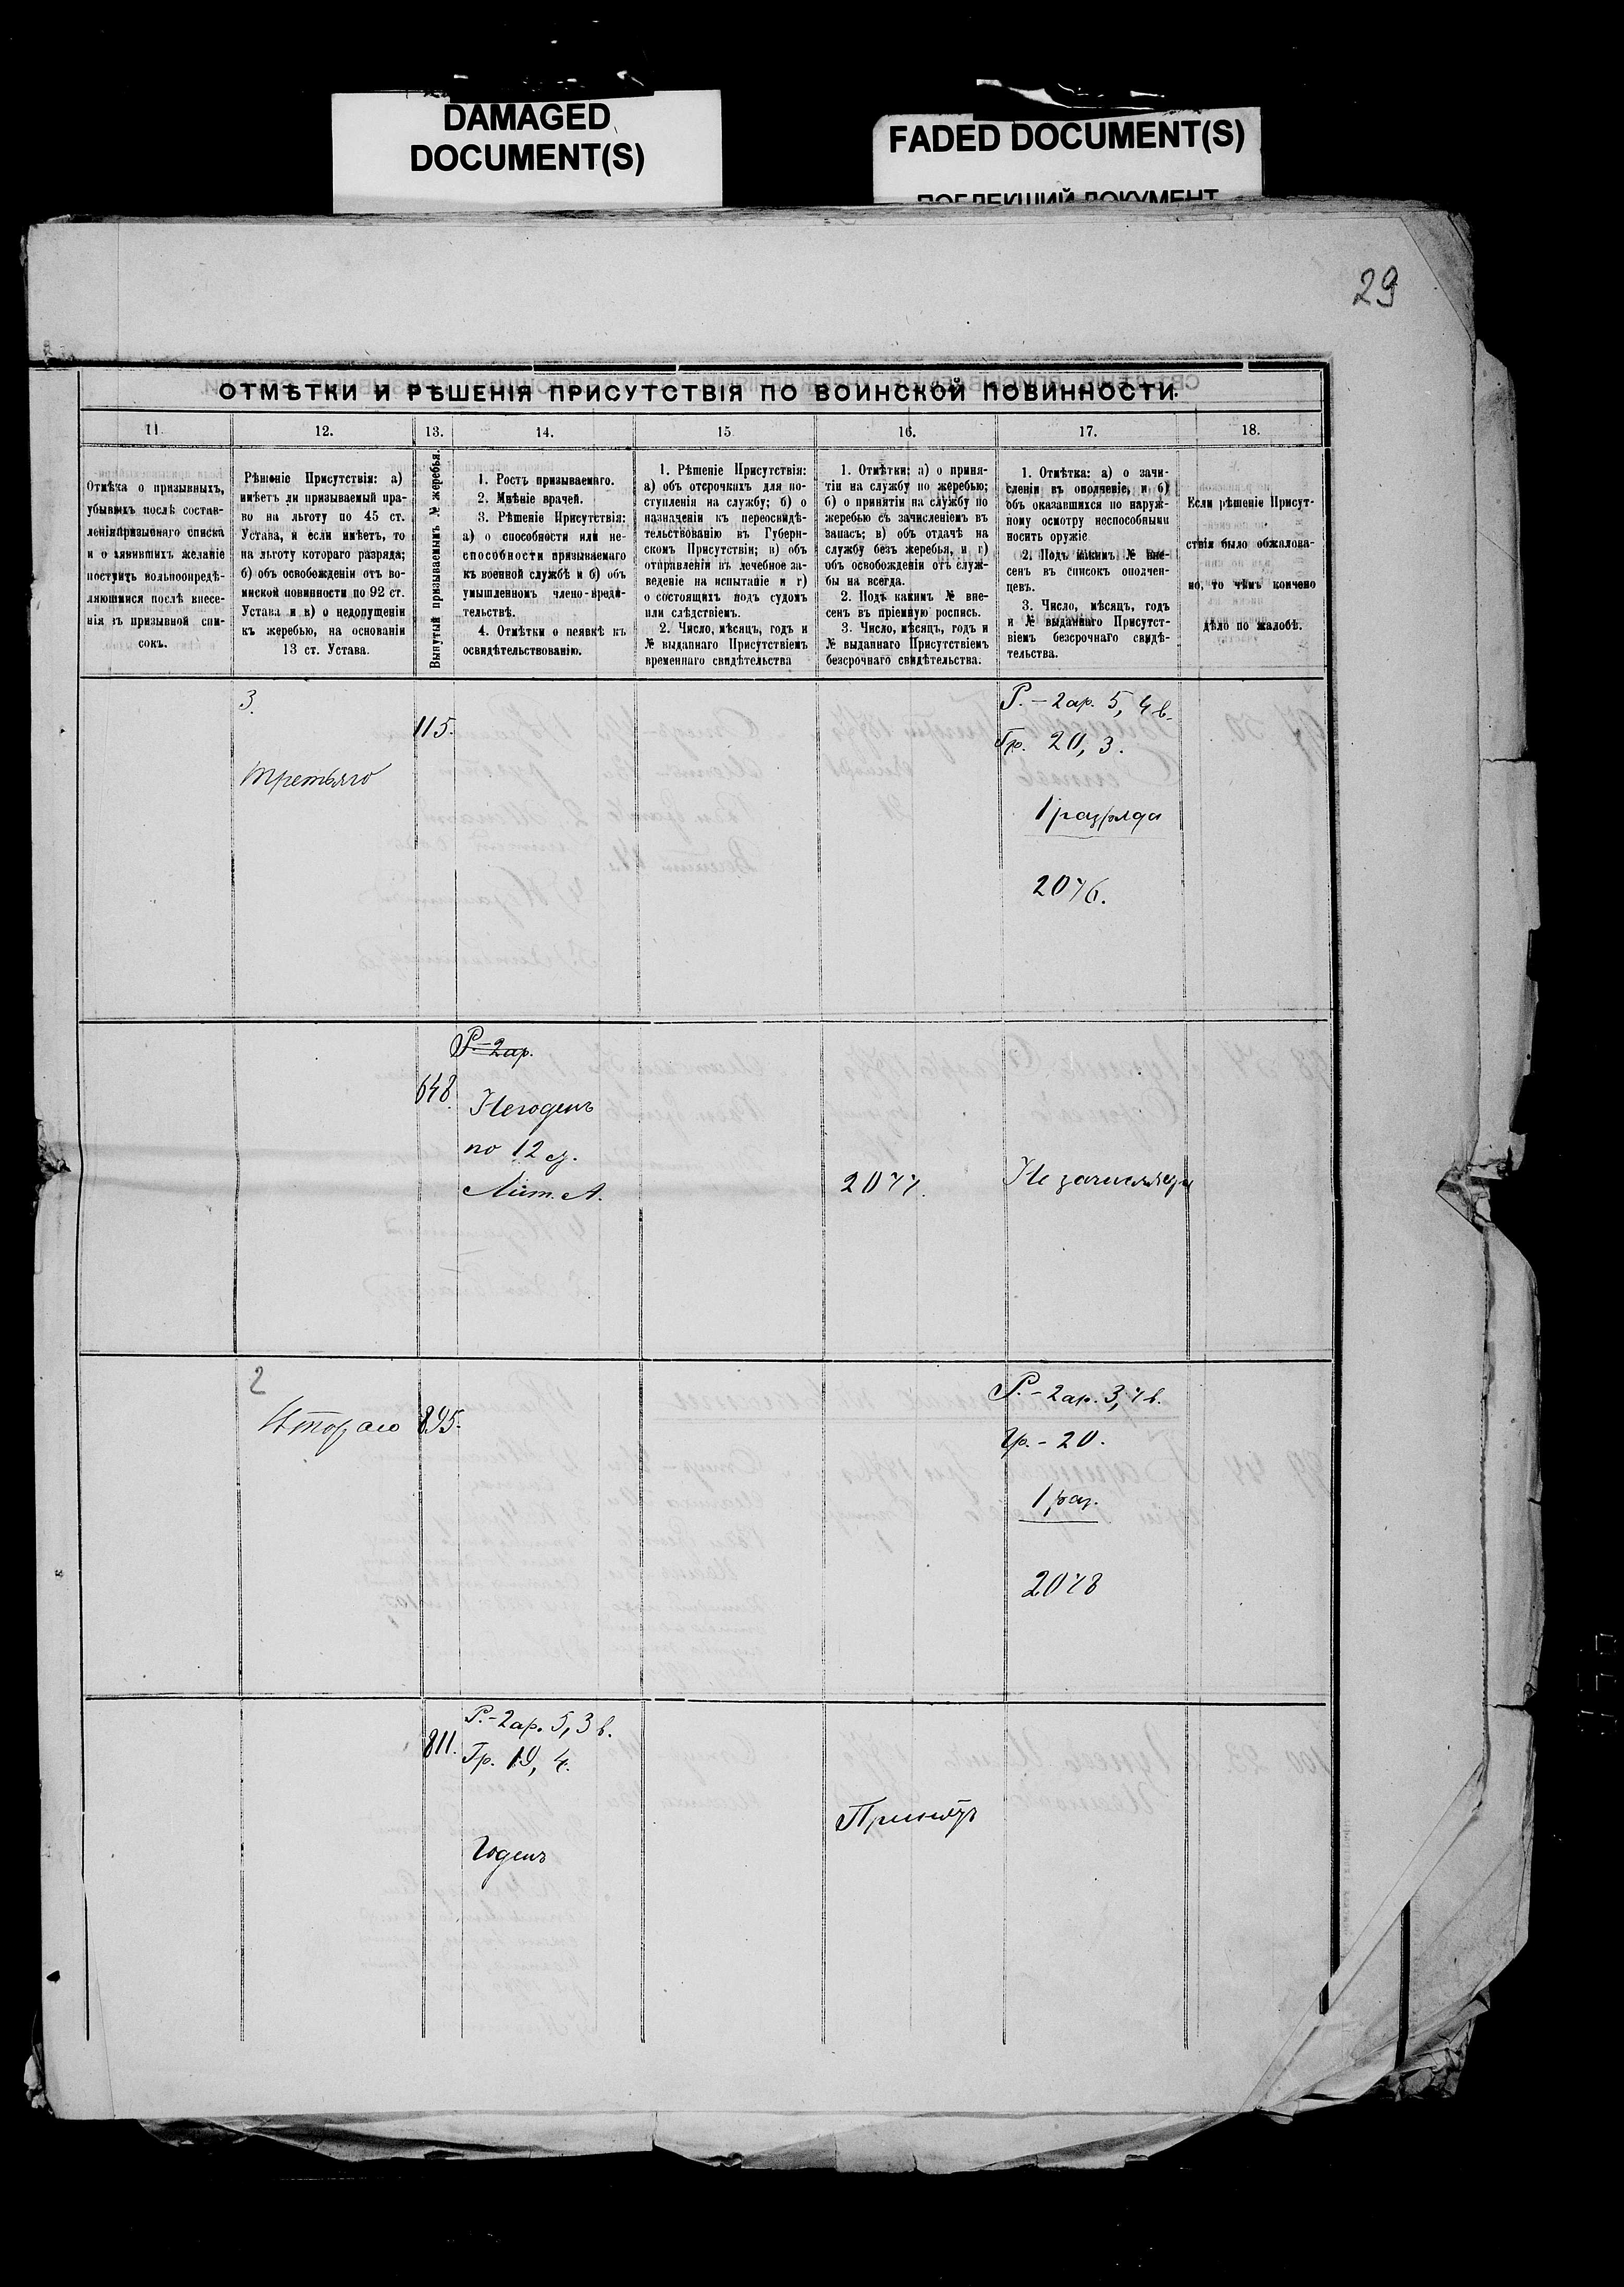 DAMAGED
DOCUMENT(S)
FADED DOCUMENT(S)
ПОБЛЕКШИЙ ДОКУМЕНТ
29
ОТМѢТКИ И РѢШЕНІЯ ПРИСУТСТВІЯ ПО ВОИНСКОЙ ПОВИННОСТИ.
11.
12.
13.
14.
15.
16.
17.
18.
Отмѣтка о призывныхъ,
убывшихъ послѣ состав-
ленія призывнаго списка
и о заявившихъ желаніе
поступить вольноопредѣ-
ляющимися послѣ внесе-
нія въ призывной спи-
сокъ.
Рѣшеніе Присутствія: а)
имѣетъ ли призываемый пра-
во на льготу по 45 ст.
Устава, и если имѣетъ, то
на льготу котораго разряда;
б) объ освобожденіи отъ во-
инской повинности по 92 ст.
Устава и в) о недопущеніи
къ жеребью, на основаніи
13 ст. Устава.
Вынутый призываемымъ № жеребья.
1. Ростъ призываемаго.
2. Мнѣніе врачей.
3. Рѣшеніе Присутствія:
а) о способности или не-
способности призываемаго
къ военной службѣ и б) объ
умышленномъ члено-вреди-
тельствѣ.
4. Отмѣтки о неявкѣ къ
освидѣтельствованію.
1. Рѣшеніе Присутствія:
а) объ отсрочкахъ для по-
ступленія на службу; б) о
назначеніи къ переосвидѣ-
тельствованію въ Губерн-
скомъ Присутствіи; в) объ
отправленіи въ лечебное за-
веденіе на испытаніе и г)
о состоящихъ подъ судомъ
или слѣдствіемъ.
2. Число, мѣсяцъ, годъ и
№ выданнаго Присутствіемъ
временнаго свидѣтельства
1. Отмѣтки: а) о приня-
тіи на службу по жеребью;
б) о принятіи на службу по
жеребью съ зачисленіемъ въ
запасъ; в) объ отдачѣ на
службу безъ жеребья, и г)
объ освобожденіи отъ служ-
бы на всегда.
2. Подъ какимъ № вне-
сенъ въ пріемную роспись.
3. Число, мѣсяцъ, годъ и
№ выданнаго Присутствіемъ
безсрочнаго свидѣтельства.
1. Отмѣтка: а) о зачи-
сленіи въ ополченіе, и б)
объ оказавшихся по наруж-
ному осмотру неспособными
носить оружіе
2. Подъ какимъ № вне-
сенъ въ списокъ ополчен-
цевъ.
3. Число, мѣсяцъ, годъ
и № выданнаго Присутст-
віемъ безсрочнаго свидѣ-
тельства.
Если рѣшеніе Присут-
ствія было обжалова-
но, то чѣмъ кончено
дѣло по жалобѣ.
3.
третьяго
115.
Р. - 2 ар. 5, 4 в.
Гр. 20, 3.
1 разряда
2076.
Р. - 2 ар.
648.
Негоденъ
по 12 ст.
Лит. А.
2077.
Не зачисляется
2
Втораго
895.
Р. - 2 ар. 3, 7 в.
Гр. - 20.
1 раз.
2078
811.
Р. - 2 ар. 5, 3 в.
Гр. 19, 4.
Годенъ
Принятъ